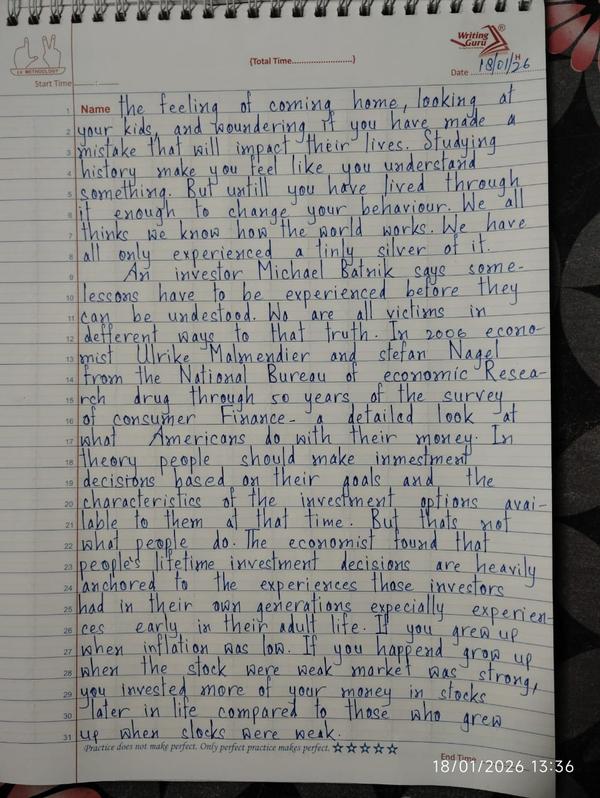 Writing Guru ®
LV METHODOLOGY
(Total Time........................)
H
Date 18/01/26
Start Time
1 Name the feeling of coming home, looking at
2 your kids, and woundering if you have made a
3 mistake that will impact their lives. Studying
4 history make you feel like you understand
5 something. But untill you have lived through
6 it enough to change your behaviour. We all
7 thinks we know how the world works. We have
8 all only experienced a tinly silver of it.
9 An investor Michael Batnik says some-
10 lessons have to be experienced before they
11 can be undestood. We are all victims in
12 defferent ways to that truth. In 2006 econo-
13 mist Ulrike Malmendier and stefan Nagel
14 from the National Bureau of economic Resea-
15 rch drug through 50 years of the survey
16 of consumer Finance - a detailed look at
17 what Americans do with their money. In
18 theory people should make inmestment
19 decisions based on their goals and the
20 characteristics of the investment options avai-
21 lable to them at that time. But thats not
22 what people do. The economist found that
23 people's lifetime investment decisions are heavily
24 anchored to the experiences those investors
25 had in their own generations expecially experien-
26 ces early in their adult life. If you grew up
27 when inflation was low. If you happend grow up
28 when the stock were weak market was strong,
29 you invested more of your money in stocks
30 later in life compared to those who grew
31 up when slocks were weak.
Practice does not make perfect. Only perfect practice makes perfect. ☆☆☆☆☆
End Time
18/01/2026 13:36